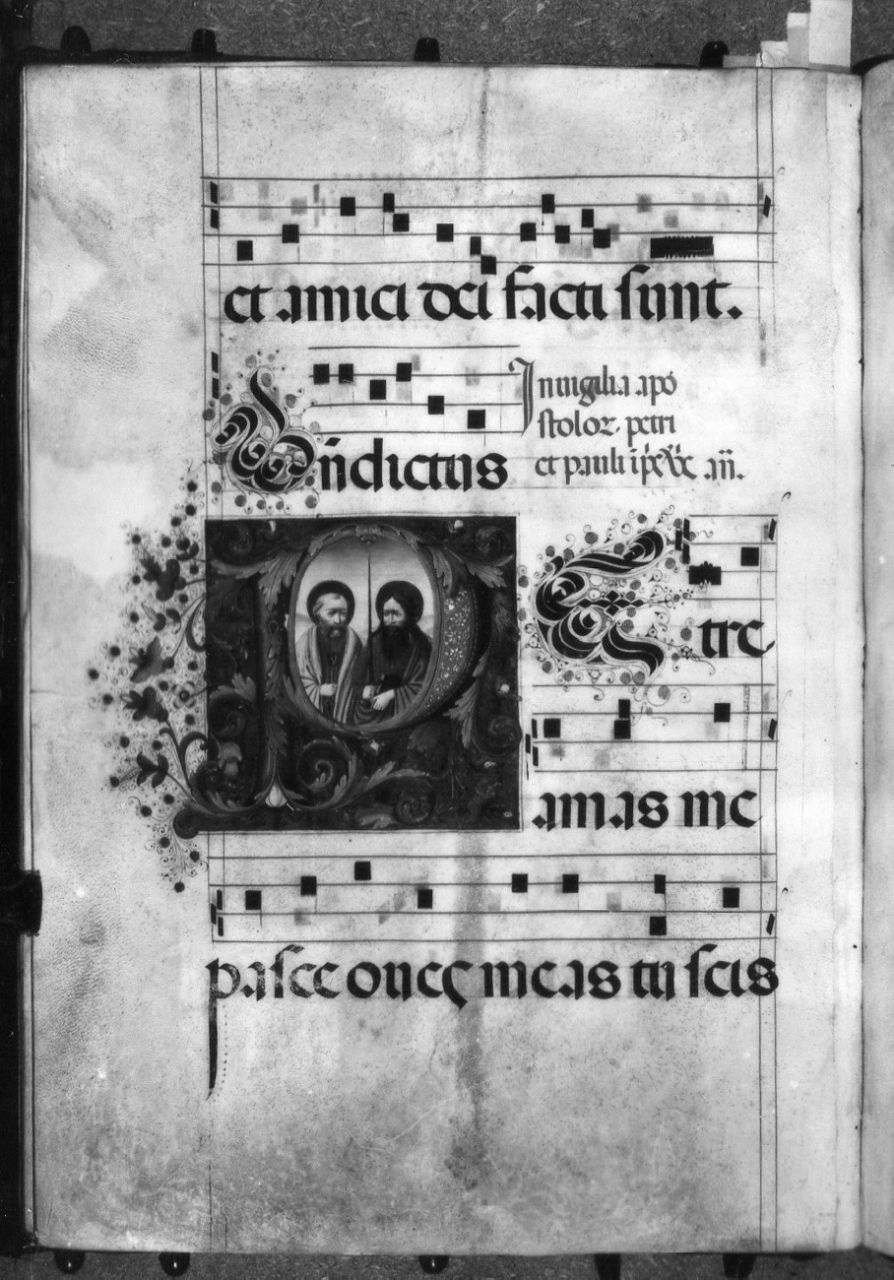 et amici dei facti sunt.
Bñdictus
In uigilia apo
stolor. petri
et pauli
añ.
PEtre
amas me
pasce oues meas tu scis